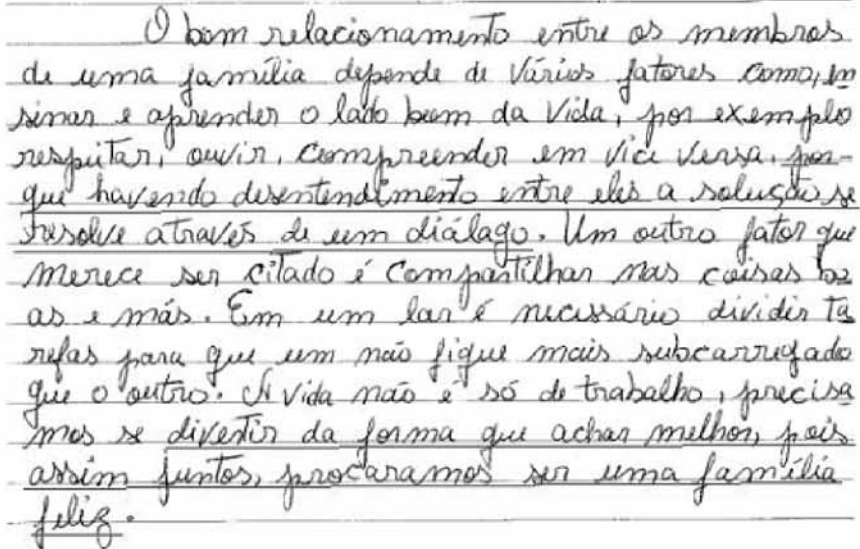 O bom relacionamento entre os membros
de uma família depende de vários fatores como, en
sinar e aprender o lado bom da vida, por exemplo
respeitar, ouvir, compreender em vice versa, por-
que havendo desentendimento entre eles a solução se
resolve através de um diálago. Um outro fator que
merece ser citado é compartilhar nas coisas bo
as e más. Em um lar é necessário dividir ta
refas para que um não fique mais subcarregado
que o outro. A vida não é só de trabalho, precisa
mos se divertir da forma que achar melhor, pois
assim juntos, procaramos ser uma família
feliz.